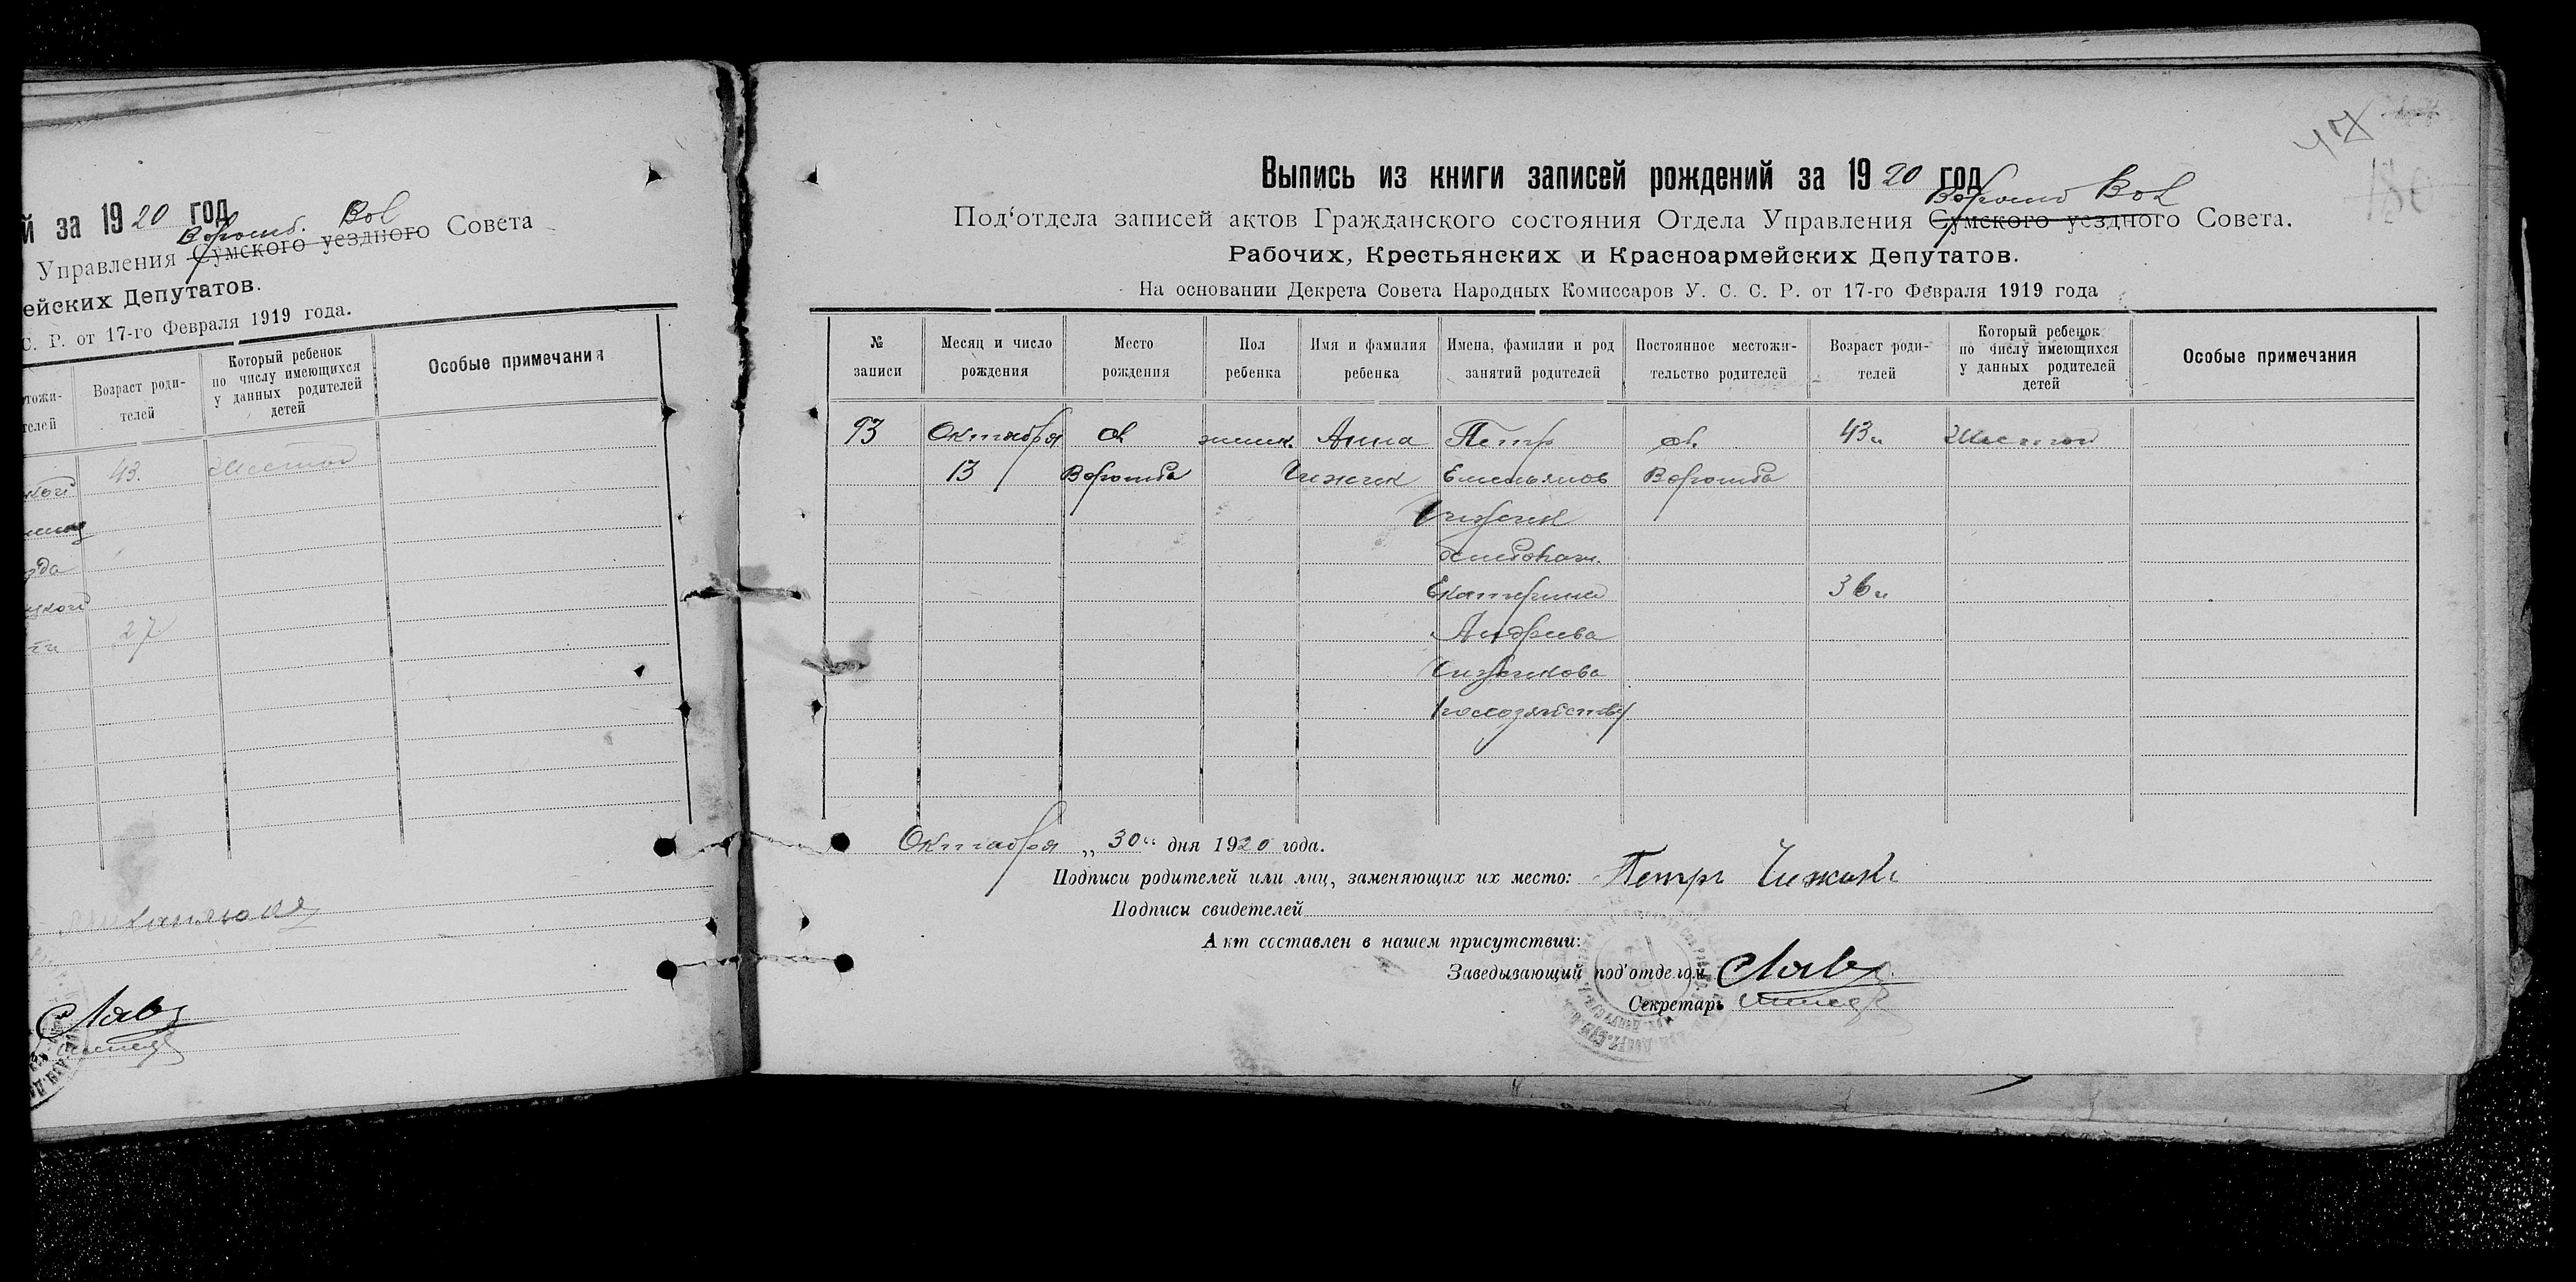 й за 1920 год
Ворожб. Вол
Управления Сумского уездного Совета
ейских Депутатов.
С. Р. от 17-го Февраля 1919 года.
тожи-
телей
Возраст роди-
телей
Который ребенок
по числу имеющихся
у данных родителей
детей
Особые примечания
43. Шестой
27
Выпись из книги записей рождений за 1920 год
Ворожб Вол
Под'отдела записей актов Гражданского состояния Отдела Управления Сумского уездного Совета.
Рабочих, Крестьянских и Красноармейских Депутатов.
На основании Декрета Совета Народных Комиссаров У. С. С. Р. от 17-го Февраля 1919 года
180
№
записи
Месяц и число
рождения
Место
рождения
Пол
ребенка
Имя и фамилия
ребенка
Имена, фамилии и род
занятий родителей
Постоянное местожи-
тельство родителей
Возраст роди-
телей
Который ребенок
по числу имеющихся
у данных родителей
детей
Особые примечания
93 Октября сл. женск. Анна Петр сл. 43 Шестой
13 Ворожба Чижик Емельянов Ворожба
Чижик
Екатерина 36
Андреева
Чижикова
Октября „30“ дня 1920 года.
Подписи родителей или лиц, заменяющих их место: Петръ Чижик
Подписи свидетелей
Акт составлен в нашем присутствии:
Заведывающий под'отделом
Секретарь